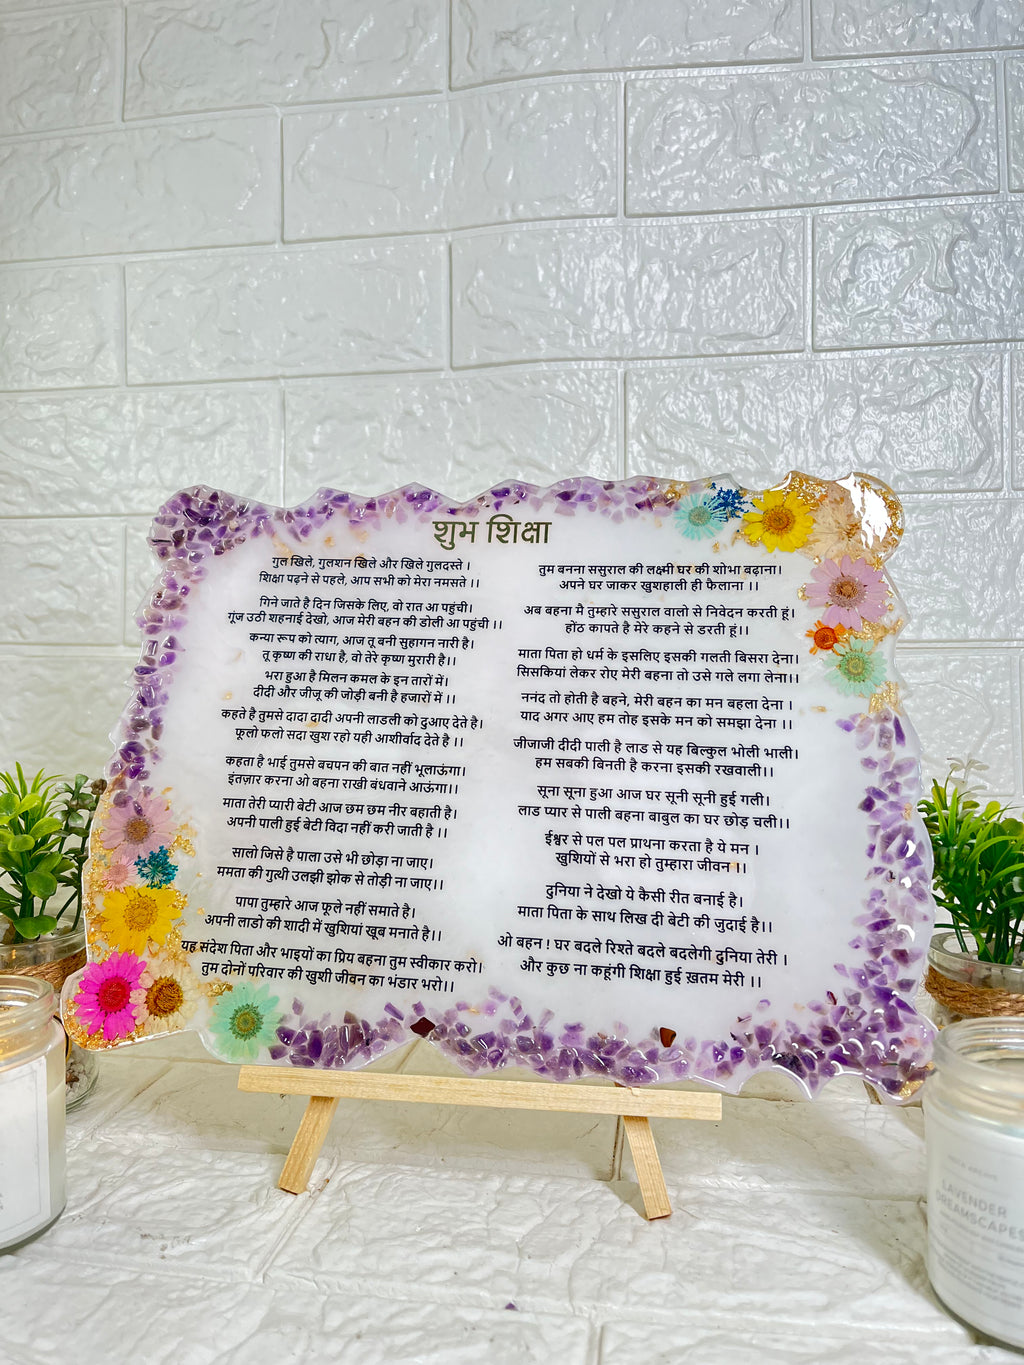 शुभ शिक्षा
गुल खिले, गुलशन खिले और खिले गुलदस्ते ।
शिक्षा पढ़ने से पहले, आप सभी को मेरा नमसते ।।
गिने जाते है दिन जिसके लिए, वो रात आ पहुंची।
गूंज उठी शहनाई देखो, आज मेरी बहन की डोली आ पहुंची ।।
कन्या रूप को त्याग, आज तू बनी सुहागन नारी है।
तू कृष्ण की राधा है, वो तेरे कृष्ण मुरारी है।।
भरा हुआ है मिलन कमल के इन तारों में।
दीदी और जीजू की जोड़ी बनी है हजारों में ।।
कहते है तुमसे दादा दादी अपनी लाडली को दुआए देते है।
फूलो फलो सदा खुश रहो यही आशीर्वाद देते है ।।
कहता है भाई तुमसे बचपन की बात नहीं भूलाऊंगा।
इंतज़ार करना ओ बहना राखी बंधवाने आऊंगा।।
माता तेरी प्यारी बेटी आज छम छम नीर बहाती है।
अपनी पाली हुई बेटी विदा नहीं करी जाती है ।।
सालो जिसे है पाला उसे भी छोड़ा ना जाए।
ममता की गुत्थी उलझी झोक से तोड़ी ना जाए।।
पापा तुम्हारे आज फूले नहीं समाते है।
अपनी लाडो की शादी में खुशियां खूब मनाते है।।
यह संदेश पिता और भाइयों का प्रिय बहना तुम स्वीकार करो।
तुम दोनों परिवार की खुशी जीवन का भंडार भरो।।
तुम बनना ससुराल की लक्ष्मी घर की शोभा बढ़ाना।
अपने घर जाकर खुशहाली ही फैलाना ।।
अब बहना मै तुम्हारे ससुराल वालो से निवेदन करती हूं।
होंठ कापते है मेरे कहने से डरती हूं।।
माता पिता हो धर्म के इसलिए इसकी गलती बिसरा देना।
सिसकियां लेकर रोए मेरी बहना तो उसे गले लगा लेना।।
ननंद तो होती है बहने, मेरी बहन का मन बहला देना ।
याद अगर आए हम तोह इसके मन को समझा देना ।।
जीजाजी दीदी पाली है लाड से यह बिल्कुल भोली भाली।
हम सबकी बिनती है करना इसकी रखवाली।।
सूना सूना हुआ आज घर सूनी सूनी हुई गली।
लाड प्यार से पाली बहना बाबुल का घर छोड़ चली।।
ईश्वर से पल पल प्राथना करता है ये मन ।
खुशियों से भरा हो तुम्हारा जीवन ।।
दुनिया ने देखो ये कैसी रीत बनाई है।
माता पिता के साथ लिख दी बेटी की जुदाई है।।
ओ बहन ! घर बदले रिश्ते बदले बदलेगी दुनिया तेरी ।
और कुछ ना कहूंगी शिक्षा हुई ख़तम मेरी ।।
LAVENDER
DREAMSCAPES